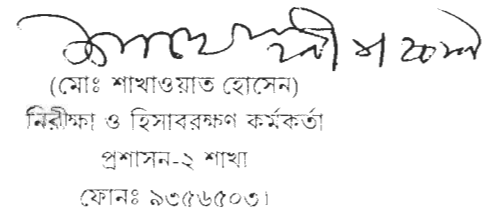 (মোঃ শাখাওয়াত হোসেন)
নিরীক্ষা ও হিসাবরক্ষণ কর্মকর্তা
প্রশাসন-২ শাখা
ফোনঃ ৯৩৫৬৫০৩।